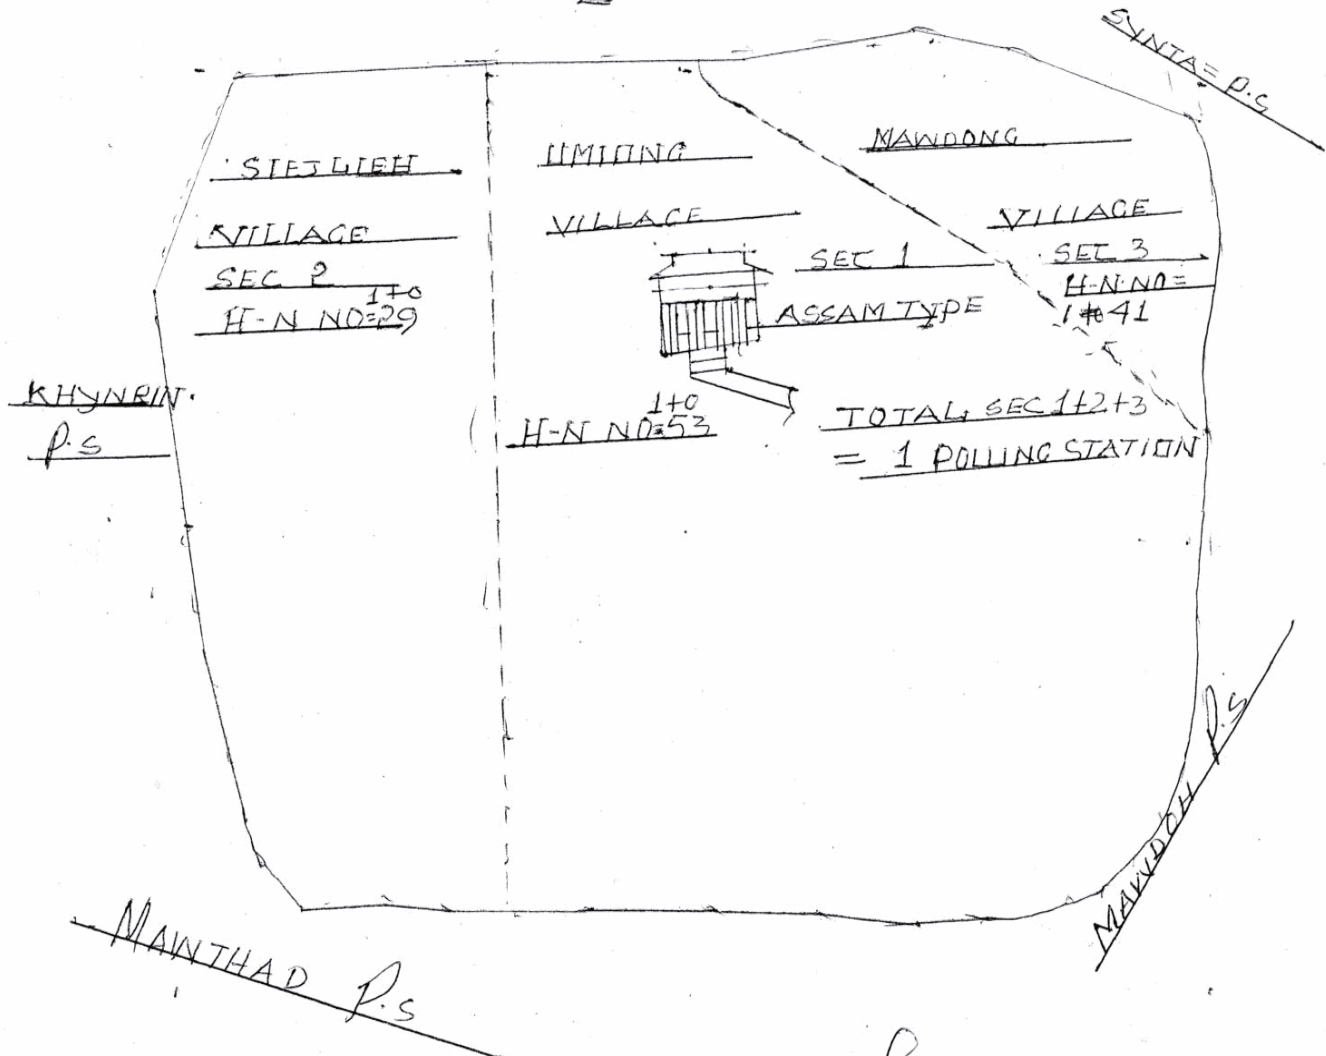 SYNTA= P.S
SIEJLIEH
VILLAGE
SEC 2
1 to
H-N NO=29
UMIONG
VILLAGE
SEC 1
ASSAM TYPE
1 to
H-N NO=53
MAWDONG
VILLAGE
SEC 3
H-N-NO=
1 to 41
TOTAL SEC 1+2+3
= 1 POLLING STATION
KHYNRIN
P.S
MAWDOH P.S
MAWTHAD P.S